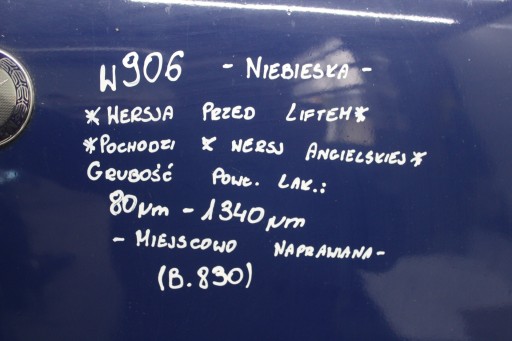 W906 - NIEBIESKA -
*WERSJA PRZED LIFTEM*
*POCHODZI Z WERSJ ANGIELSKIEJ*
GRUBOŚĆ POWŁ. LAK.:
80µm - 1340µm
- MIEJSCOWO NAPRAWIANA -
(B.890)